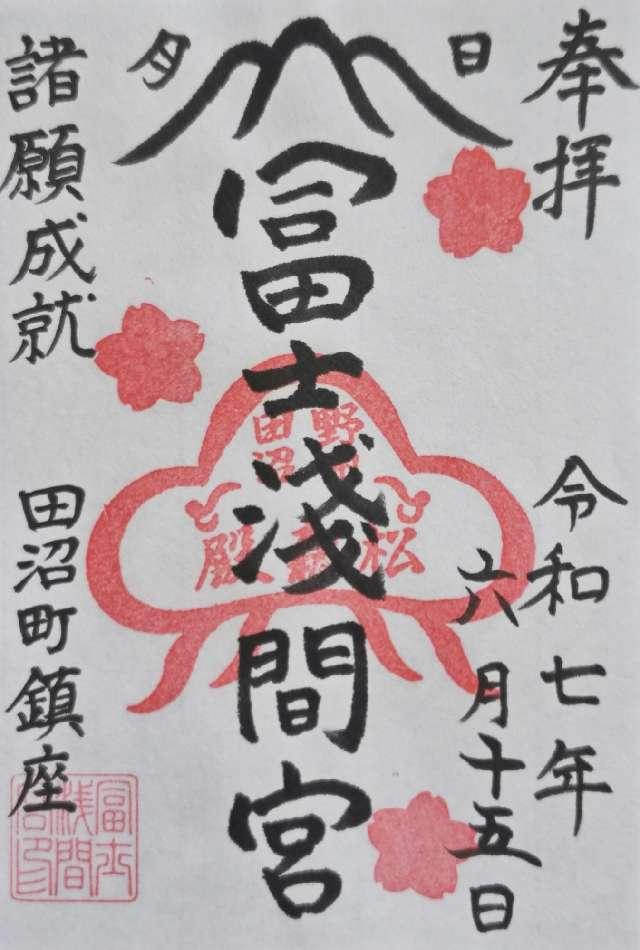 奉拝
日
月
冨士浅間宮
令和七年
六月十五日
諸願成就
田沼町鎮座
田沼
松
殿
冨士
浅間
宮印